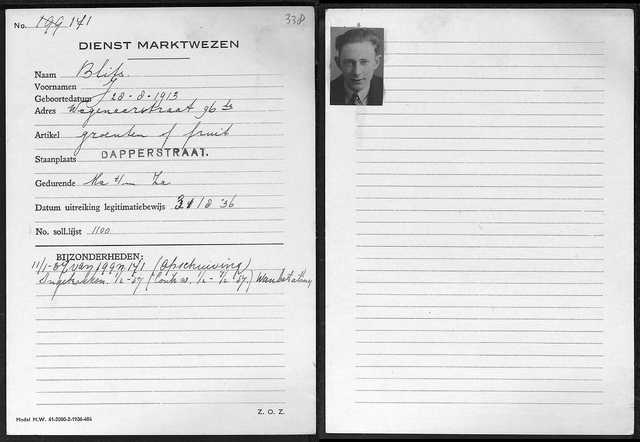 No. 199 141
338
DIENST MARKTWEZEN
Naam Blits
Voornamen J
Geboortedatum 28-8-1913
Adres Wagenaarstraat 96 hs
Artikel groenten of fruit
Staanplaats DAPPERSTRAAT.
Gedurende Ma t/m Za
Datum uitreiking legitimatiebewijs 31/8 '36
No. soll.lijst 1100
BIJZONDERHEDEN:
11/1-37 van 199 141 (Opschuiving)
Ingetrokken. 1/2-37 (Contr. 1/2 - 7/2 -37.) Wanbetaling
Model M.W. 41-2000-2-1936-484
Z. O. Z.